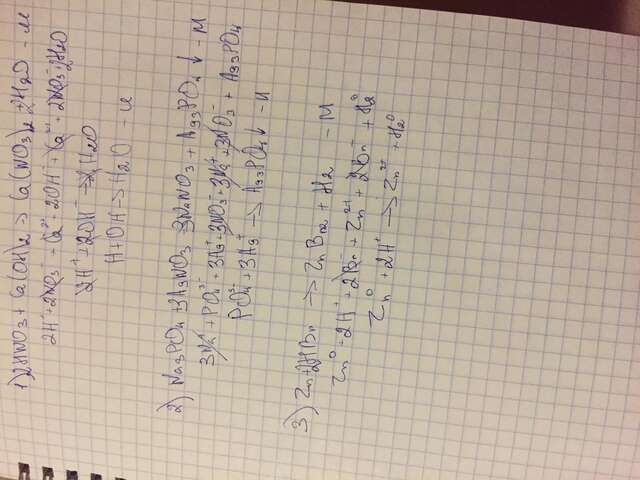 1) 2HNO3 + Ca(OH)2 → Ca(NO3)2 + 2H2O - м
2H⁺ + 2NO3⁻ + Ca²⁺ + 2OH⁻ → Ca²⁺ + 2NO3⁻ + 2H2O
2H⁺ + 2OH⁻ → 2H2O
H + OH → H2O - и
2) Na3PO4 + 3AgNO3 → 3NaNO3 + Ag3PO4 ↓ - М
3Na⁺ + PO4³⁻ + 3Ag⁺ + 3NO3⁻ → 3Na⁺ + 3NO3⁻ + Ag3PO4
PO4³⁻ + 3Ag⁺ → Ag3PO4 ↓ - и
3) Zn + 2HBr → ZnBr2 + H2 - М
Zn⁰ + 2H⁺ + 2Br⁻ → Zn²⁺ + 2Br⁻ + H2⁰
Zn⁰ + 2H⁺ → Zn²⁺ + H2⁰